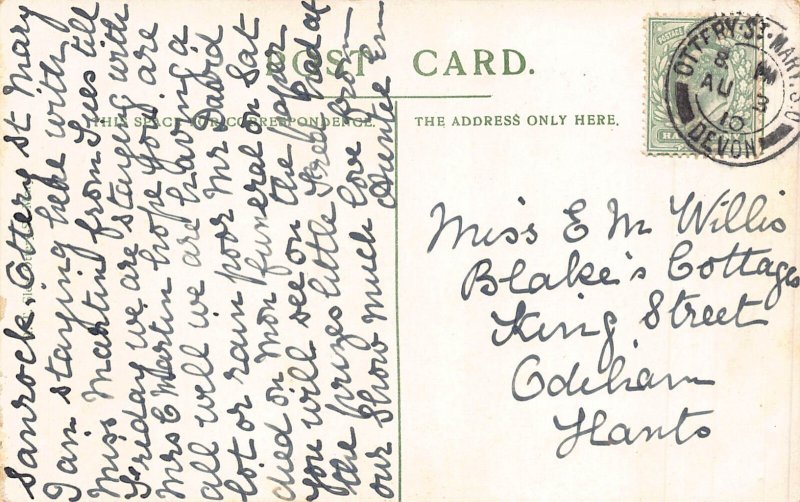 POST CARD.
THIS SPACE FOR CORRESPONDENCE.
THE ADDRESS ONLY HERE.
OTTERY-ST-MARY. S.O
8 PM
AU 3
10
DEVON
POSTAGE
Sanrock. Ottery St Mary
I am staying here with
Miss Martin from Tues till
Friday we are staying with
Mrs C Martin hope you are
all well we are having a
lot or rain poor Mr David
died on Mon funeral on Sat
you will see on the paper
the prizes little Fred had at
our Show much love from
Auntie Em
Miss E M Willis
Blake's Cottages
King Street
Odiham
Hants